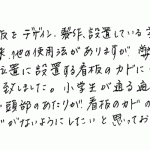 板をデザイン、製作、設置している
他の使用法がありますが
位置に設置する看板のカドに
致しました。小学生が通る通
頭部のあたりが看板のカドの
がないようにしたいと思ってお